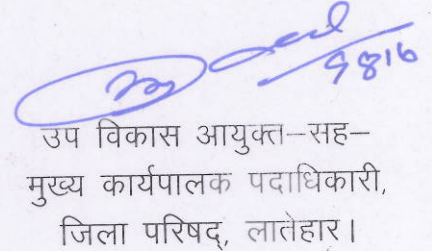 9816
उप विकास आयुक्त–सह–
मुख्य कार्यपालक पदाधिकारी,
जिला परिषद्, लातेहार।